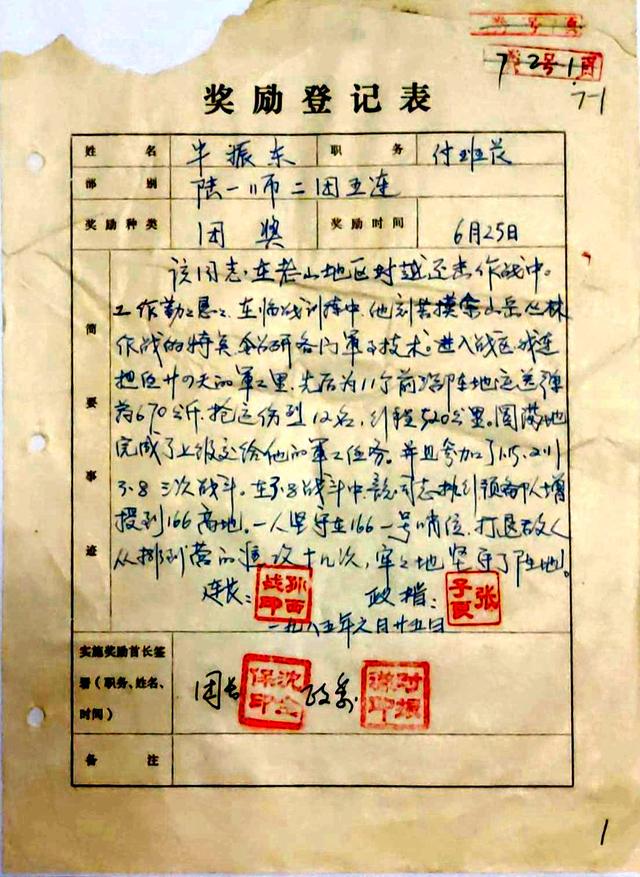 7 2号1页
7-1
奖励登记表
姓名 牛振东 职务 付班长
部别 陆一11师二团五连
奖励种类 团奖 奖励时间 6月25日
简要事迹
该同志在老山地区对越还击作战中。
工作勤勤恳恳、在临战训练中,他刻苦摸索山岳丛林
作战的特点,钻研各门军事技术。进入战区,我连
担任廿四天的军工里,先后为11个前沿阵地运送弹
药670公斤,抢运伤烈12名,行程520公里。圆满地
完成了上级交给他的军工任务。并且参加了1.15、2.11
3.8三次战斗。在3.8战斗中该同志执行预备队增
援到166高地。一人坚守在166一号哨位,打退敌人
从排到营的进攻十几次,牢牢地坚守了阵地。
连长: 孙西战印 政指: 张子良
一九八五年六月廿五日
实施奖励首长签
署(职务、姓名、
时间)
团长 沈 保印 政委 印
备注
1